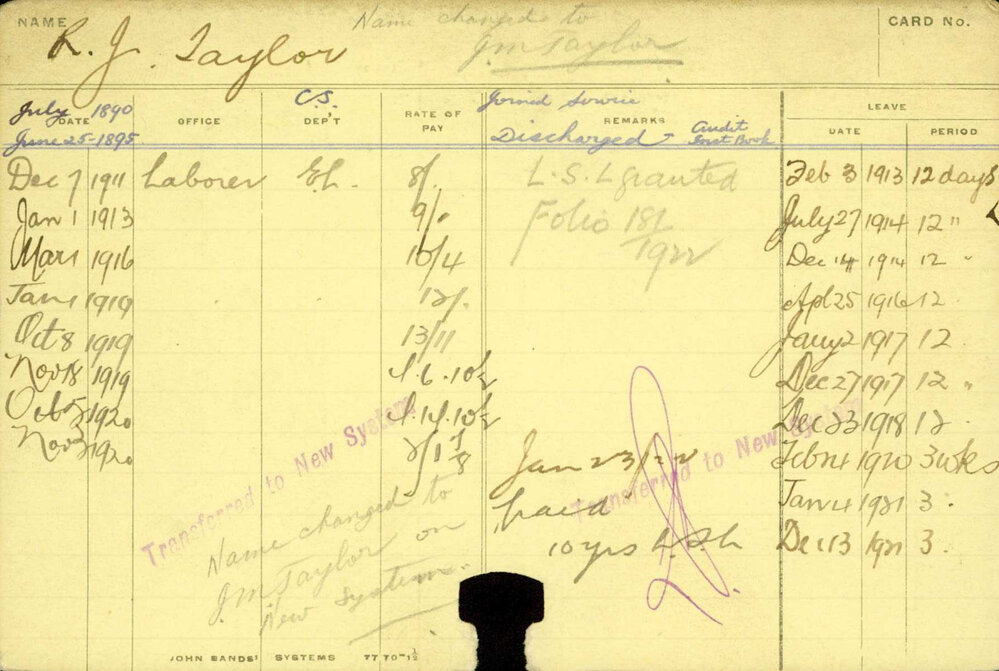 NAME R. J. Taylor
Name changed to
J M Taylor
CARD No.
July 1890
June 25-1895
DATE
OFFICE
C.S.
DEP'T
RATE OF
PAY
Joined
Discharged
REMARKS
Audit
Book
LEAVE
DATE PERIOD
Dec 7 1911 Laborer EL. 8/. L.S.L granted Feb 3 1913 12 days
Jan 1 1913 9/. Folio 181/1922 July 27 1914 12 "
Mar 1 1916 10/4 Dec 14 1914 12 "
Jan 1 1919 12/. Apl 25 1916 12
Oct 8 1919 13/11 Jany 2 1917 12
Nov 18 1919 Dec 27 1917 12 "
Oct 1920 Dec 23 1918 12
Nov 1920 Feb 1920 3 wks
Jan 23/22 Jan 4 1921 3.
paid Dec 13 1921 3.
10 yrs
Transferred to New System
Transferred to New System
Name changed to
J M Taylor on
New System.
JOHN SANDS' SYSTEMS 7770-1½